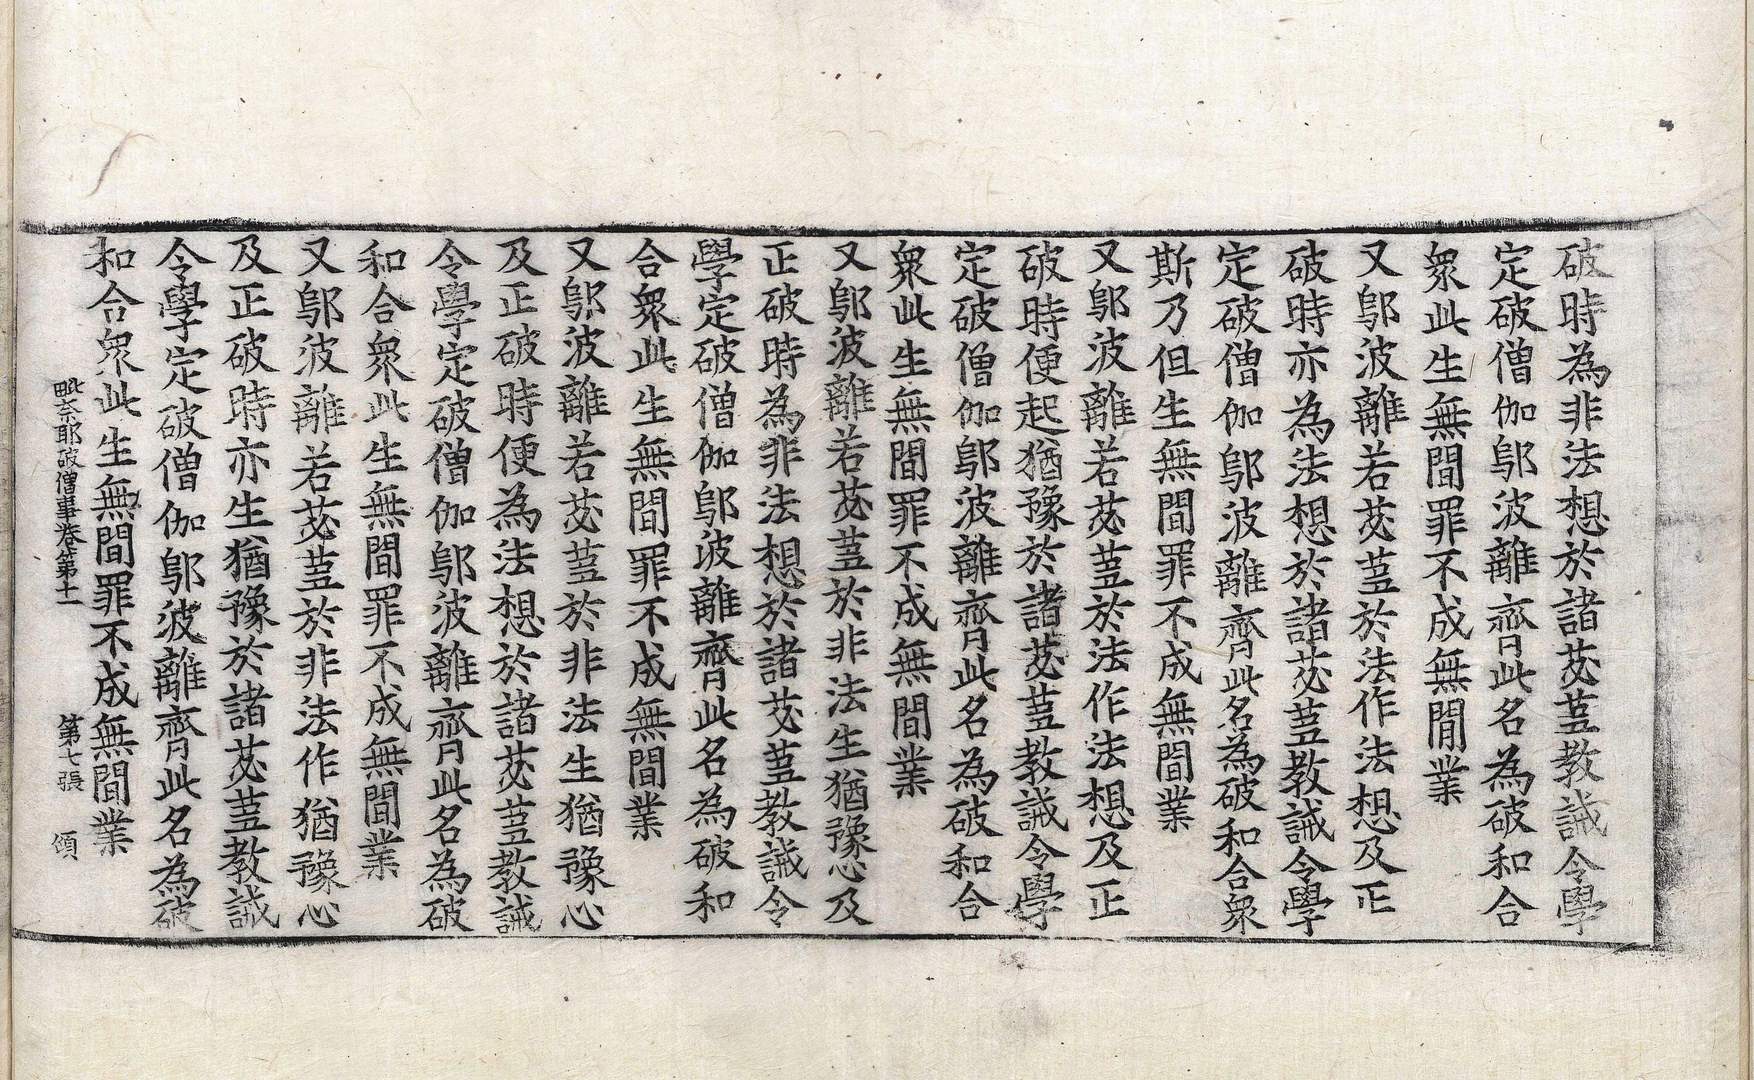 破時為非法想於諸苾蒭教誡令學
定破僧伽鄔波離齊此名為破和合
衆此生無間罪不成無間業
又鄔波離若苾蒭於法作法想及正
破時亦為法想於諸苾蒭教誡令學
定破僧伽鄔波離齊此名為破和合衆
斯乃但生無間罪不成無間業
又鄔波離若苾蒭於法作法想及正
破時便起猶豫於諸苾蒭教誡令學
定破僧伽鄔波離齊此名為破和合
衆此生無間罪不成無間業
又鄔波離若苾蒭於非法生猶豫心及
正破時為非法想於諸苾蒭教誡令
學定破僧伽鄔波離齊此名為破和
合衆此生無間罪不成無間業
又鄔波離若苾蒭於非法生猶豫心
及正破時便為法想於諸苾蒭教誡
令學定破僧伽鄔波離齊此名為破
和合衆此生無間罪不成無間業
又鄔波離若苾蒭於非法作猶豫心
及正破時亦生猶豫於諸苾蒭教誡
令學定破僧伽鄔波離齊此名為破
和合衆此生無間罪不成無間業
毗奈耶破僧事卷第十一 第七張 傾